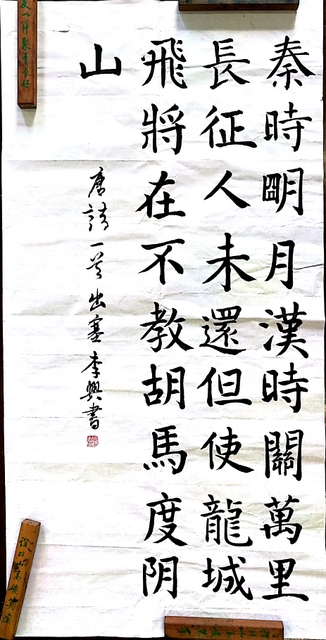 秦時明月漢時關萬里
長征人未還但使龍城
飛將在不教胡馬度阴
山
唐詩一首出塞李興書